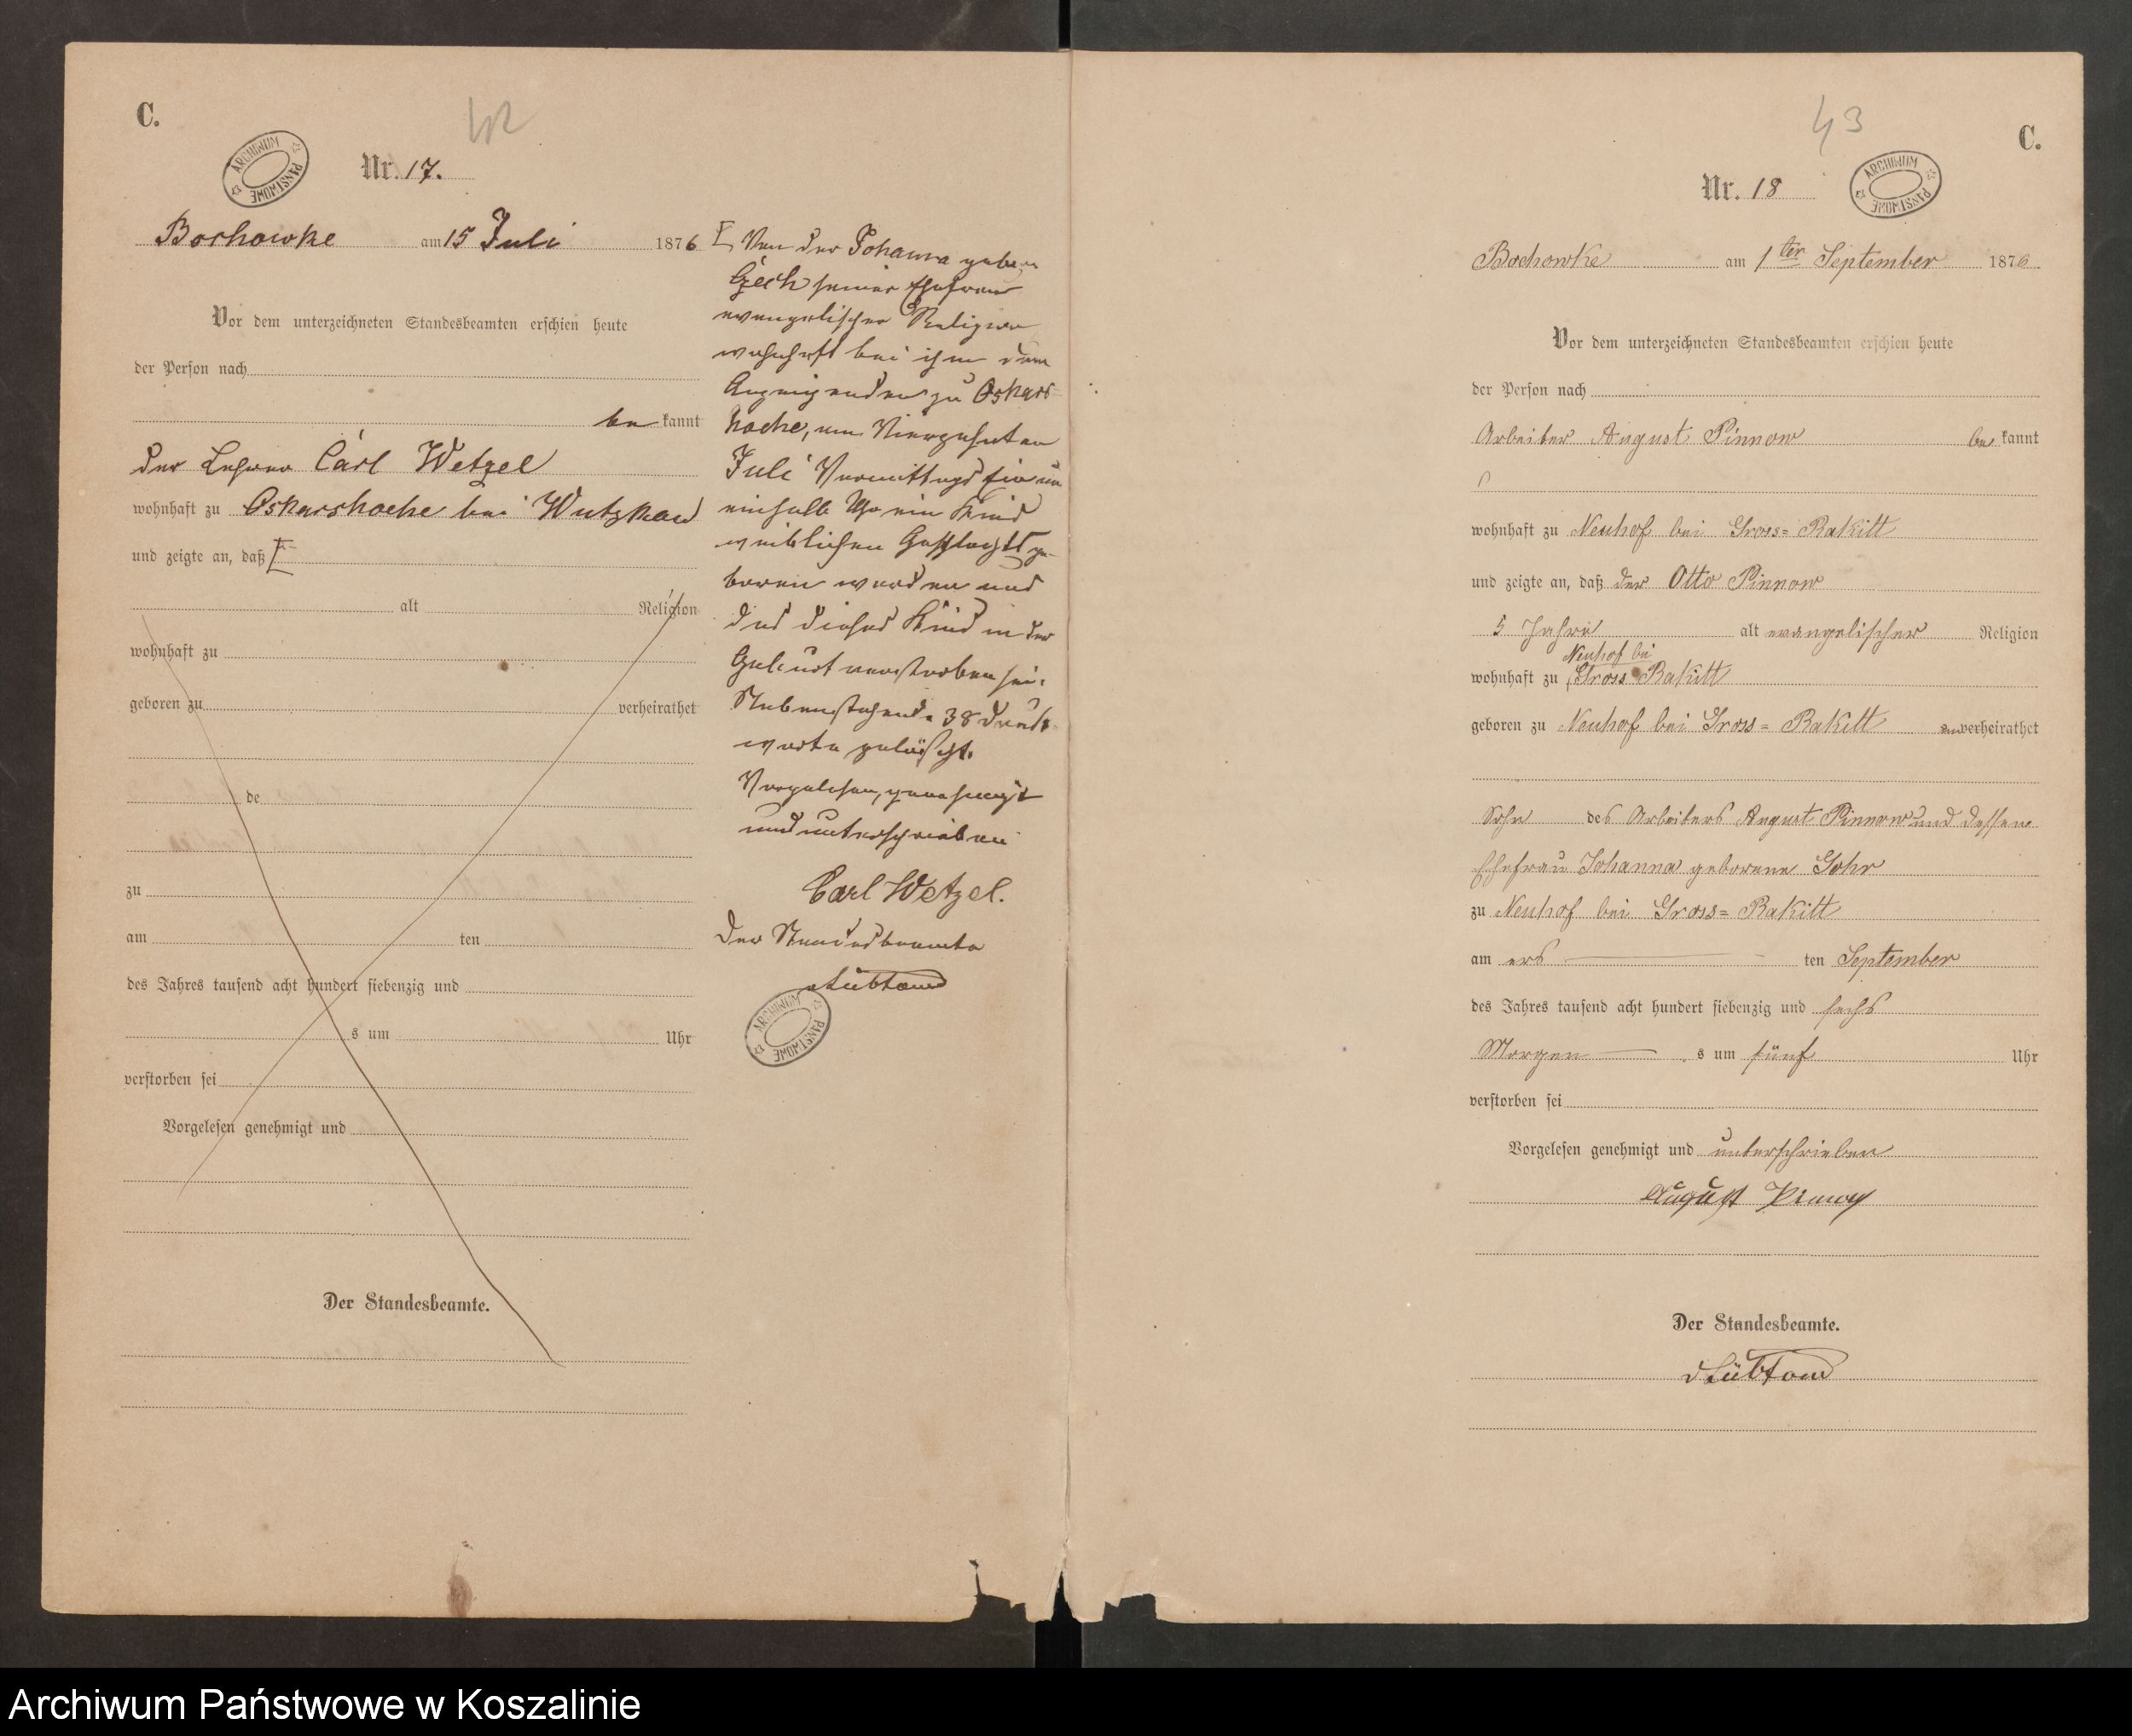 C.
42
ARCHIWUM PAŃSTWOWE
Nr. 17.
Bochowke am 15 Juli 1876
Vor dem unterzeichneten Standesbeamten erschien heute
der Person nach
be kannt
der Lehrer Carl Wetzel
wohnhaft zu Oskarshoehe bei Wutzkow
und zeigte an, daß
alt Religion
wohnhaft zu
geboren zu verheirathet
de
zu
am ten
des Jahres tausend acht hundert siebenzig und
s um Uhr
verstorben sei
Vorgelesen genehmigt und
Der Standesbeamte.
Von der Johanna geboren
Czech seiner Ehefrau
evangelischer Religion
wohnhaft bei ihm dem
Anzeigenden zu Oskars=
hoehe, am Vierzehnten
Juli Vormittags
einhalb Uhr ein Kind
weiblichen Geschlechts ge-
boren worden und
daß dieses Kind in der
Geburt verstorben sei.
Nebenstehende 38 Druck-
worte gelöscht.
Vorgelesen, genehmigt
und unterschrieben
Carl Wetzel.
Der Standesbeamte
ARCHIWUM PAŃSTWOWE
43
C.
Nr. 18
ARCHIWUM PAŃSTWOWE
Bochowke am 1ter September 1876
Vor dem unterzeichneten Standesbeamten erschien heute
der Person nach
Arbeiter August Pinnow be kannt
wohnhaft zu Neuhof bei Gross=Rakitt
und zeigte an, daß der Otto Pinnow
5 Jahre alt evangelischer Religion
Neuhof bei
wohnhaft zu Gross Rakitt
geboren zu Neuhof bei Gross=Rakitt unverheirathet
Sohn des Arbeiters August Pinnow und dessen
Ehefrau Johanna geborene Gohr
zu Neuhof bei Gross=Rakitt
am ers ten September
des Jahres tausend acht hundert siebenzig und sechs
Morgen s um fünf Uhr
verstorben sei
Vorgelesen genehmigt und unterschrieben
August Pinnow
Der Standesbeamte.
Archiwum Państwowe w Koszalinie